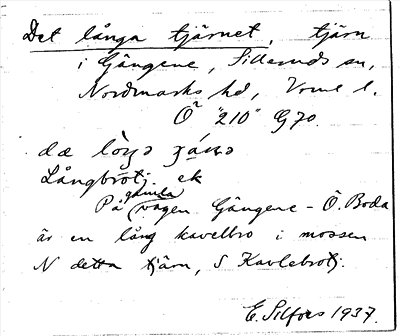 Det långa tjärnet, tjärn
i Gängene, Silleruds sn,
Nordmarks hd, Vrml l.
Ö "210" G70.
dæ lòŋə
Långbrötj ek
gamla
På vägen Gängene - Ö. Boda
är en lång kavelbro i mossen
N detta tjärn, S Kavlebrötj.
E. Silfors 1937.